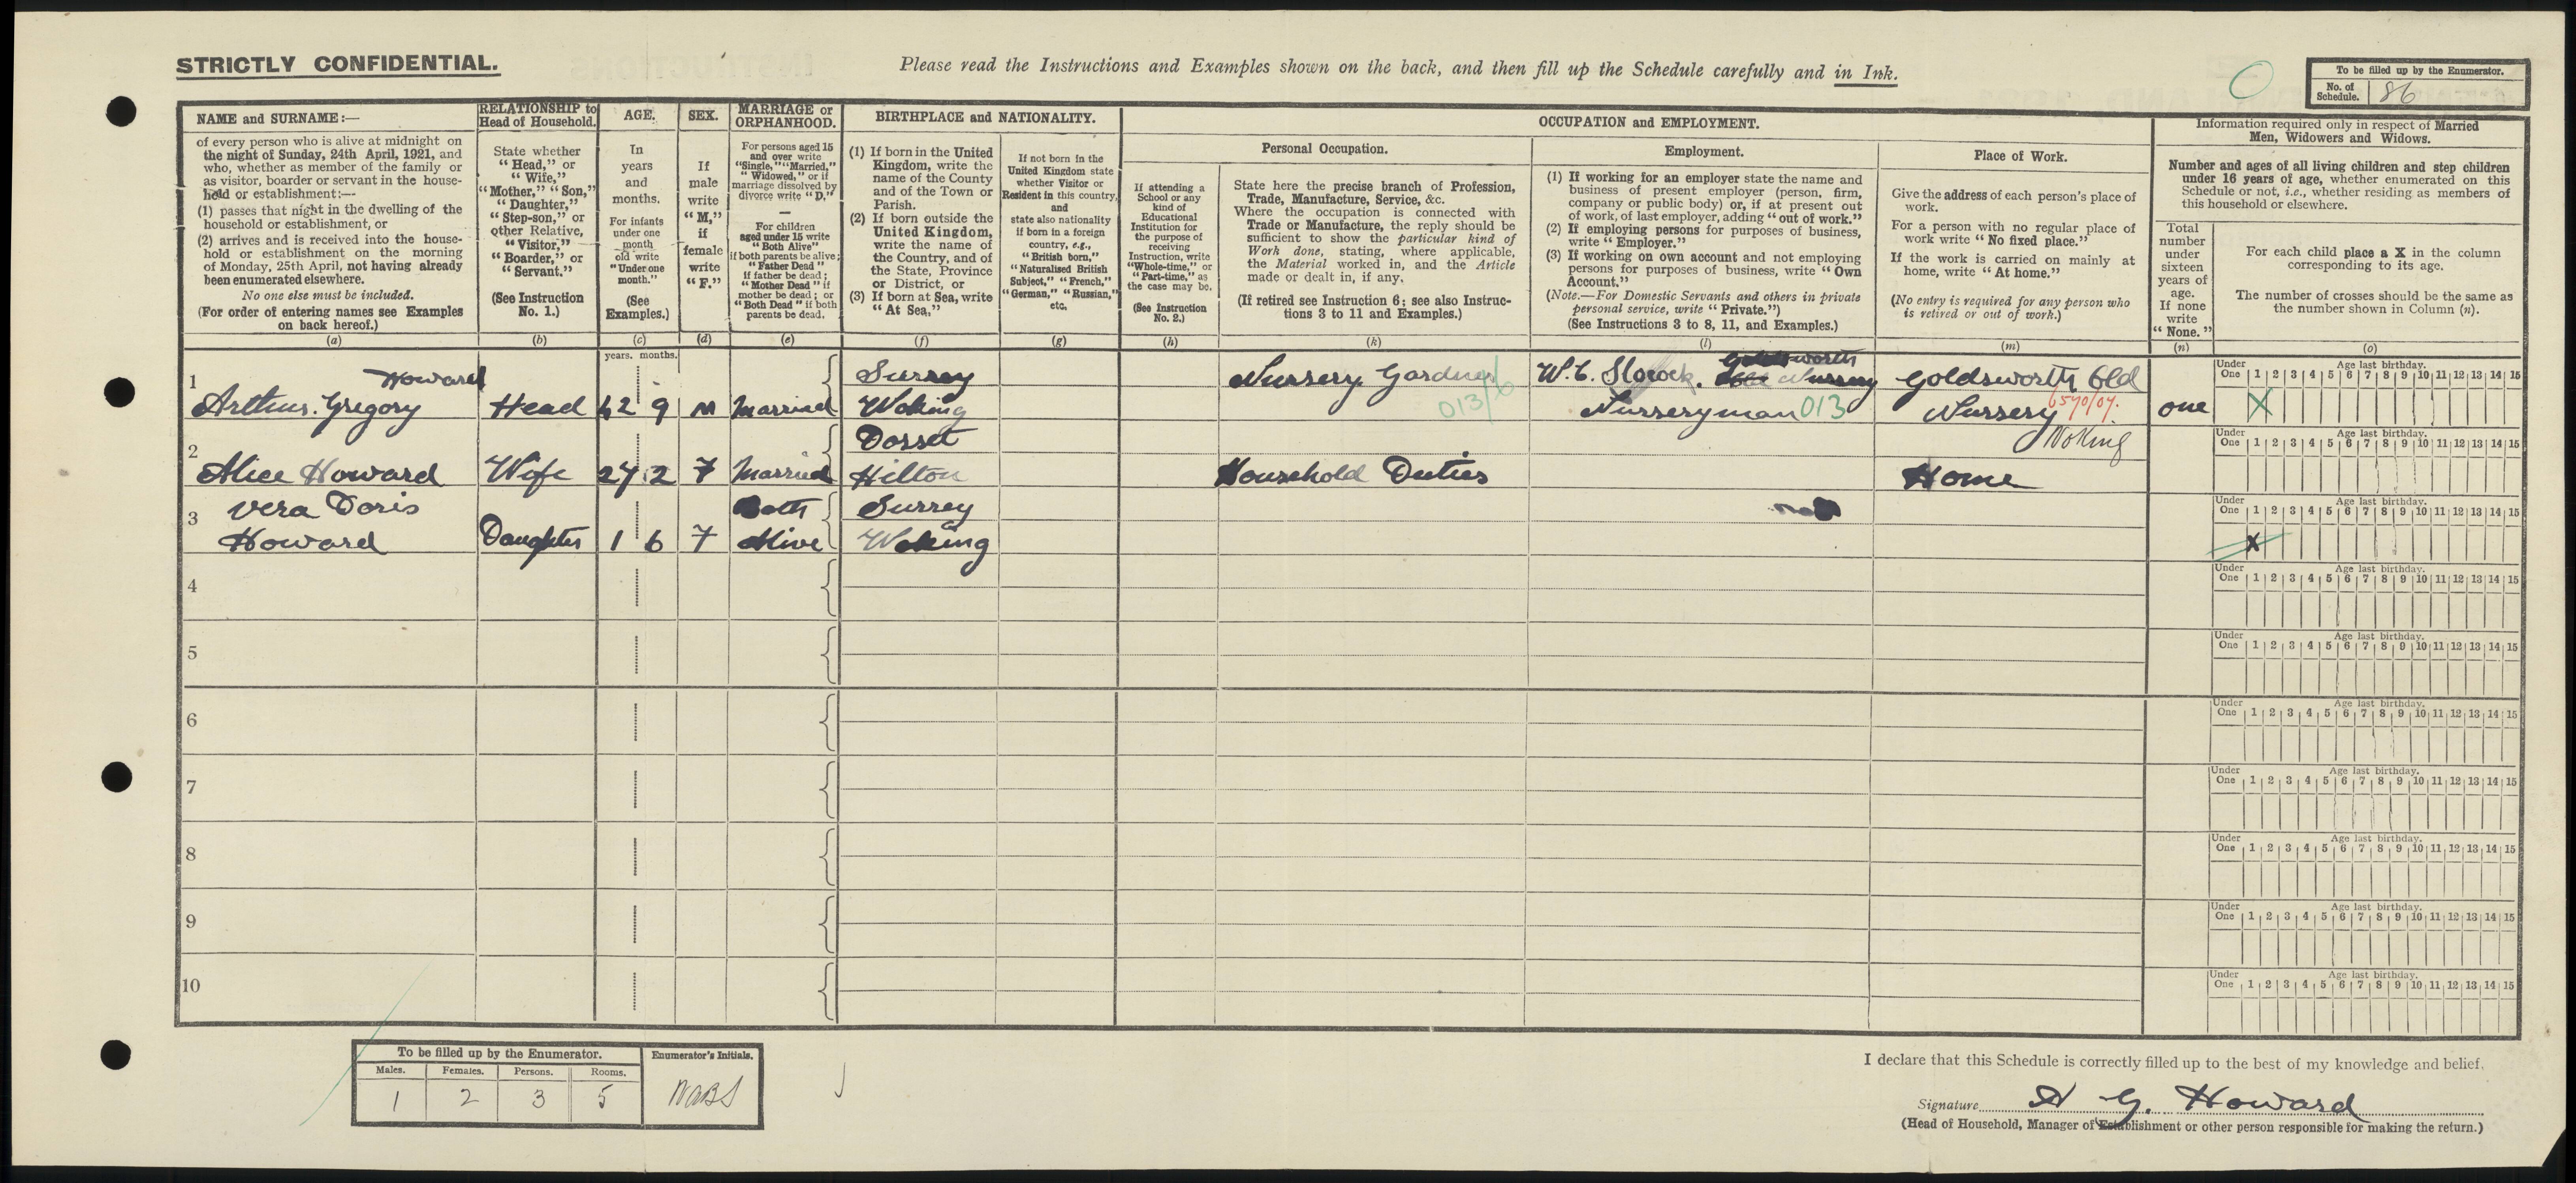 STRICTLY CONFIDENTIAL.
Please read the Instructions and Examples shown on the back, and then fill up the Schedule carefully and in Ink.
To be filled up by the Enumerator.
No. of Schedule. 86
NAME and SURNAME:—
of every person who is alive at midnight on
the night of Sunday, 24th April, 1921, and
who, whether as member of the family or
as visitor, boarder or servant in the house-
hold or establishment:—
(1) passes that night in the dwelling of the
household or establishment, or
(2) arrives and is received into the house-
hold or establishment on the morning
of Monday, 25th April, not having already
been enumerated elsewhere.
No one else must be included.
(For order of entering names see Examples
on back hereof.)
(a)
RELATIONSHIP to
Head of Household.
State whether
"Head," or
"Wife,"
"Mother," "Son,"
"Daughter,"
"Step-son," or
other Relative,
"Visitor,"
"Boarder," or
"Servant."
(See Instruction
No. 1.)
(b)
AGE.
In
years
and
months.
For infants
under one
month
old write
"Under one
month."
(See
Examples.)
(c)
SEX.
If
male
write
"M,"
if
female
write
"F."
(d)
MARRIAGE or
ORPHANHOOD.
For persons aged 15
and over write
"Single," "Married,"
"Widowed," or if
marriage dissolved by
divorce write "D."
—
For children
aged under 15 write
"Both Alive"
if both parents be alive;
"Father Dead"
if father be dead;
"Mother Dead" if
mother be dead; or
"Both Dead" if both
parents be dead.
(e)
BIRTHPLACE and NATIONALITY.
(1) If born in the United
Kingdom, write the
name of the County
and of the Town or
Parish.
(2) If born outside the
United Kingdom,
write the name of
the Country, and of
the State, Province
or District, or
(3) If born at Sea, write
"At Sea,"
(f)
If not born in the
United Kingdom state
whether Visitor or
Resident in this country,
and
state also nationality
if born in a foreign
country, e.g.,
"British born,"
"Naturalised British
Subject," "French,"
"German," "Russian,"
etc.
(g)
OCCUPATION and EMPLOYMENT.
Personal Occupation.
If attending a
School or any
kind of
Educational
Institution for
the purpose of
receiving
Instruction, write
"Whole-time," or
"Part-time," as
the case may be.
(See Instruction
No. 2.)
(h)
State here the precise branch of Profession,
Trade, Manufacture, Service, &c.
Where the occupation is connected with
Trade or Manufacture, the reply should be
sufficient to show the particular kind of
Work done, stating, where applicable,
the Material worked in, and the Article
made or dealt in, if any.
(If retired see Instruction 6; see also Instruc-
tions 3 to 11 and Examples.)
(k)
Employment.
(1) If working for an employer state the name and
business of present employer (person, firm,
company or public body) or, if at present out
of work, of last employer, adding "out of work."
(2) If employing persons for purposes of business,
write "Employer."
(3) If working on own account and not employing
persons for purposes of business, write "Own
Account."
(Note.—For Domestic Servants and others in private
personal service, write "Private.")
(See Instructions 3 to 8, 11, and Examples.)
(l)
Place of Work.
Give the address of each person's place of
work.
For a person with no regular place of
work write "No fixed place."
If the work is carried on mainly at
home, write "At home."
(No entry is required for any person who
is retired or out of work.)
(m)
Information required only in respect of Married
Men, Widowers and Widows.
Number and ages of all living children and step children
under 16 years of age, whether enumerated on this
Schedule or not, i.e., whether residing as members of
this household or elsewhere.
Total
number
under
sixteen
years of
age.
If none
write
"None."
(n)
For each child place a X in the column
corresponding to its age.
The number of crosses should be the same as
the number shown in Column (n).
(o)
years. months.
Under One Age last birthday. 1 2 3 4 5 6 7 8 9 10 11 12 13 14 15
1 Howard Surrey Nursery Gardner W. C. Slocock. Goldsworth Old Nursery Goldsworth Old
Arthur. Gregory Head 42 9 M Married Woking 013/6 Nurseryman 013 Nursery 6570/07. one X
Woking
Under One Age last birthday. 1 2 3 4 5 6 7 8 9 10 11 12 13 14 15
2 Dorset
Alice Howard Wife 27 2 F Married Hilton Household Duties Home
Under One Age last birthday. 1 2 3 4 5 6 7 8 9 10 11 12 13 14 15
3 Vera Doris Both Surrey
Howard Daughter 1 6 F Alive Woking X
Under One Age last birthday. 1 2 3 4 5 6 7 8 9 10 11 12 13 14 15
4
Under One Age last birthday. 1 2 3 4 5 6 7 8 9 10 11 12 13 14 15
5
Under One Age last birthday. 1 2 3 4 5 6 7 8 9 10 11 12 13 14 15
6
Under One Age last birthday. 1 2 3 4 5 6 7 8 9 10 11 12 13 14 15
7
Under One Age last birthday. 1 2 3 4 5 6 7 8 9 10 11 12 13 14 15
8
Under One Age last birthday. 1 2 3 4 5 6 7 8 9 10 11 12 13 14 15
9
Under One Age last birthday. 1 2 3 4 5 6 7 8 9 10 11 12 13 14 15
10
To be filled up by the Enumerator.
Males. Females. Persons. Rooms.
1 2 3 5
Enumerator's Initials.
I declare that this Schedule is correctly filled up to the best of my knowledge and belief.
Signature A G. Howard
(Head of Household, Manager of Establishment or other person responsible for making the return.)